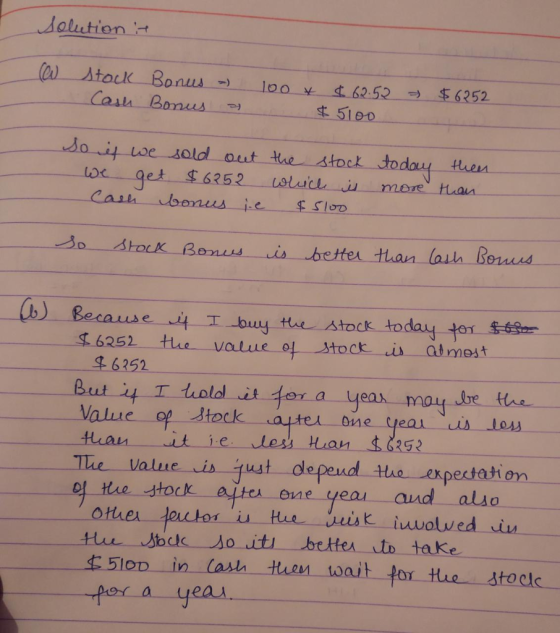 Solution :-
(a) Stock Bonus => 100 * $62.52 => $6252
Cash Bonus => $5100
So if we sold out the stock today then
we get $6252 which is more than
Cash bonus i.e $5100
So Stock Bonus is better than Cash Bonus
(b) Because if I buy the stock today for
$6252 the value of stock is almost
$6252
But if I hold it for a year may be the
Value of Stock after one year is less
than it i.e less than $6252
The Value is just depend the expectation
of the stock after one year and also
other factor is the risk involved in
the stock so its better to take
$5100 in Cash then wait for the stock
for a year.